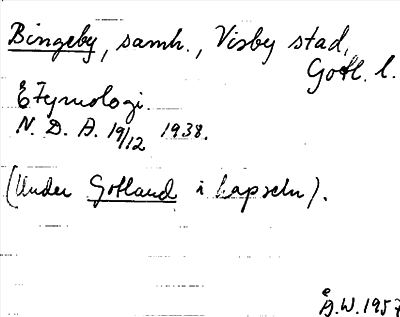 Bingeby, samh., Visby stad,
Gotl. l.
Etymologi.
N. D. A. 19/12 1938.
(Under Gotland i kapseln).
Å.W. 1957